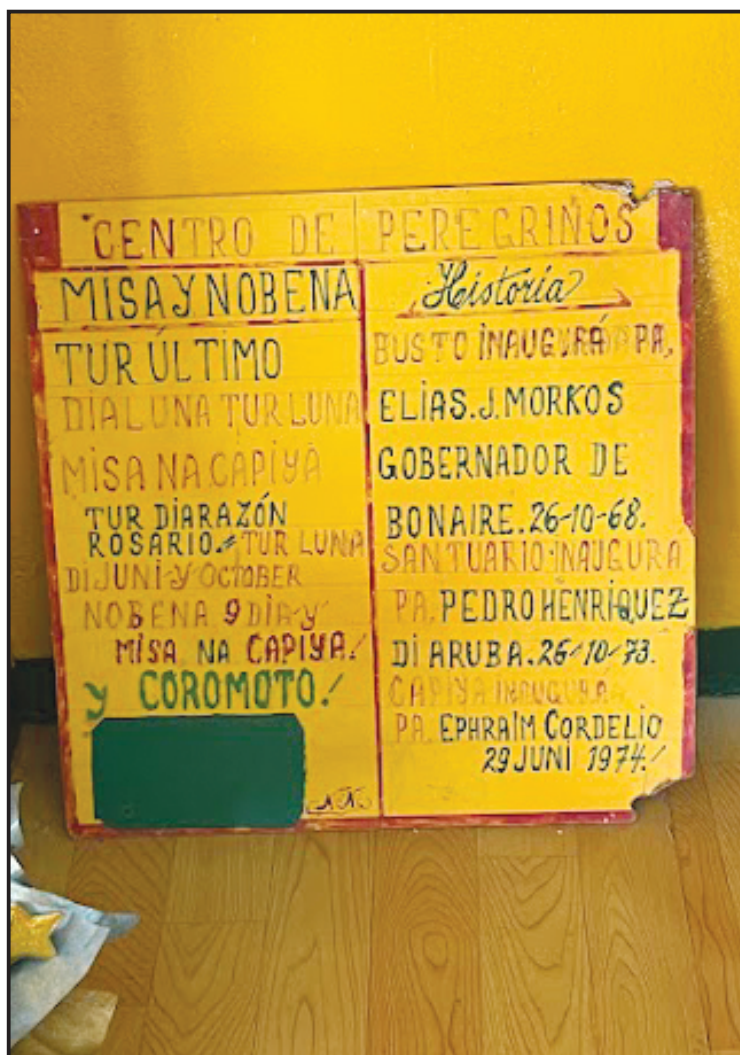 CENTRO DE PEREGRIÑOS
MISA Y NOBENA
TUR ÚLTIMO
DIALUNA TUR LUNA
MISA NA CAPIYA
TUR DIARAZÓN
ROSARIO. TUR LUNA
DI JUNI Y OCTOBER
NOBENA 9 DIA Y
MISA NA CAPIYA!
Y COROMOTO!
Historia
BUSTO INAUGURÁ PA,
ELIAS. J. MORKOS
GOBERNADOR DE
BONAIRE. 26-10-68.
SANTUARIO INAUGURA
PA. PEDRO HENRIQUEZ
DI ARUBA. 26-10-73.
CAPIYA INAUGURÁ
PA. EPHRAIM CORDELIO
29 JUNI 1974!